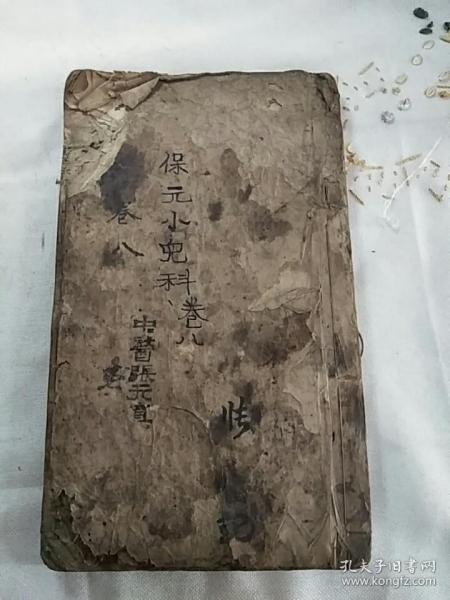 保元小兒科卷八
卷八
中醫張元
記
孔夫子旧书网
www.kongfz.com